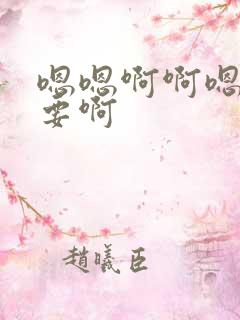 嗯嗯啊啊嗯
要啊
趙曦臣